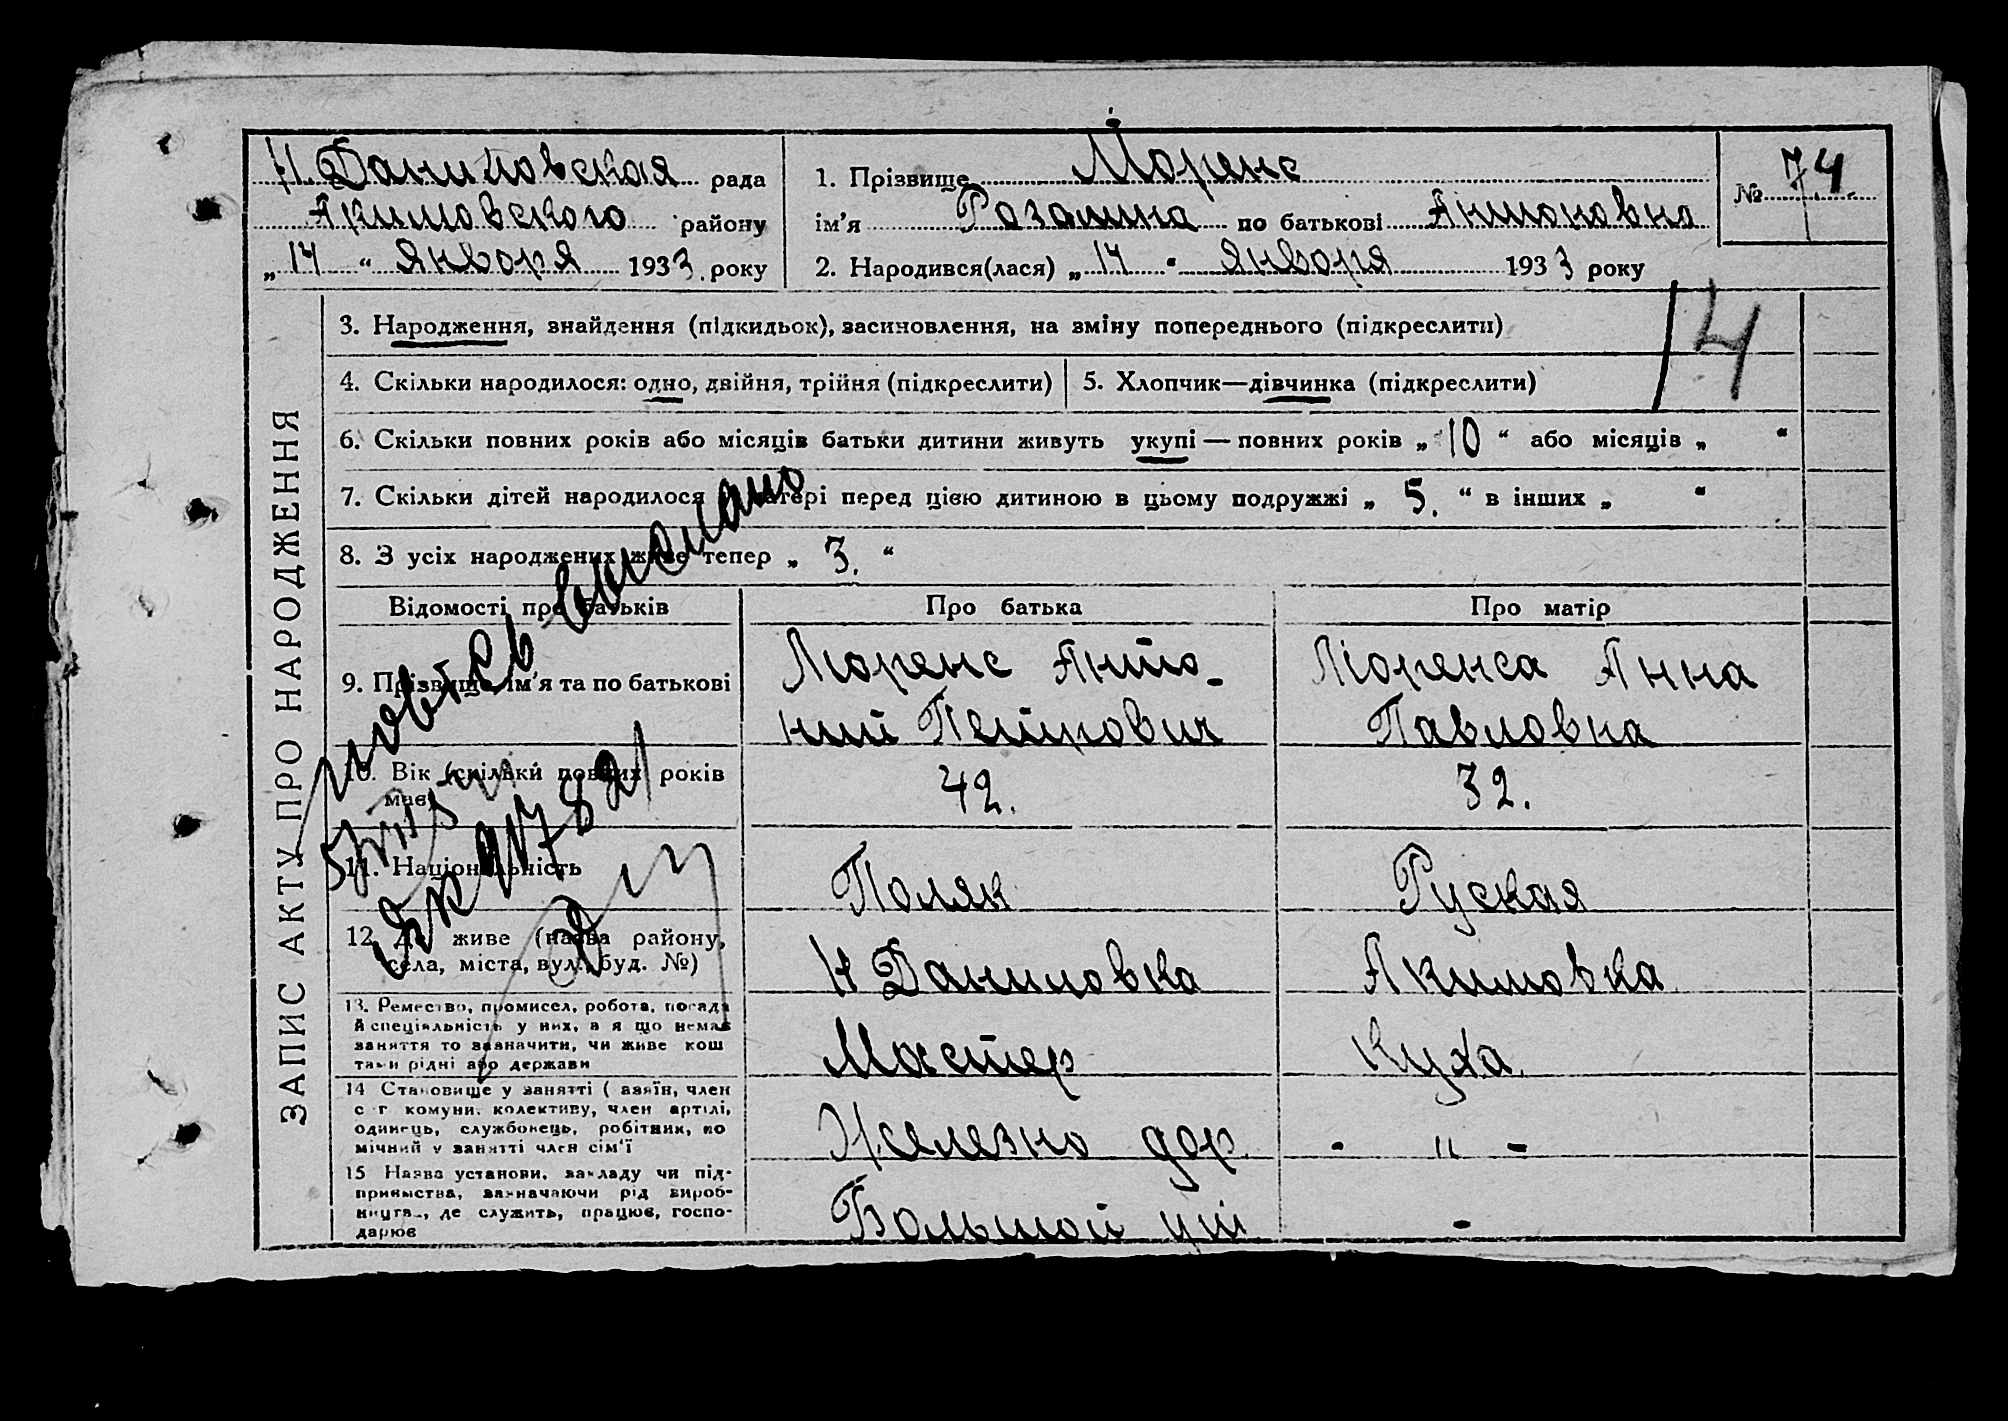 Н. Даниловская рада
Акимовского району
„ 14 “ января 1933. року
1. Прізвище Моренс
ім’я Розалина по батькові Антоновна
2. Народився(лася) „ 14 “ января 1933 року
№ 74
14
ЗАПИС АКТУ ПРО НАРОДЖЕННЯ
3. Народження, знайдення (підкидьок), засиновлення, на зміну попереднього (підкреслити)
4. Скільки народилося: одно, двійня, трійня (підкреслити)
5. Хлопчик—дівчинка (підкреслити)
6. Скільки повних років або місяців батьки дитини живуть укупі — повних років „ 10 “ або місяців „ “
7. Скільки дітей народилося матері перед цією дитиною в цьому подружжі „ 5. “ в інших „ “
8. З усіх народжених живе тепер „ 3. “
Відомості про батьків
Про батька
Про матір
9. Прізвище, ім’я та по батькові
Моренс Анто-
ний Петрович
Моренса Анна
Павловна
10. Вік (скільки повних років
має)
42.
32.
11. Національність
Поляк
Руская
12. Де живе (назва району,
села, міста, вул., буд. №)
Н Даниловка
Акимовка
13. Ремество, промисел, робота, посада
й спеціяльність у них, а я що немає
заняття то зазначити, чи живе кош
тами рідні або держави
Мастер
Куха
14 Становище у занятті ( азяїн, член
с г комуни, колективу, член артілі,
одинець, службонець, робітник, по
мічний у занятті член сім’ї
Железно дор
- " -
15 Назва установи, закладу чи під-
приємства, зазначаючи рід вироб-
ництв., де служить, працює, госпо-
дарює
Большой уш
-